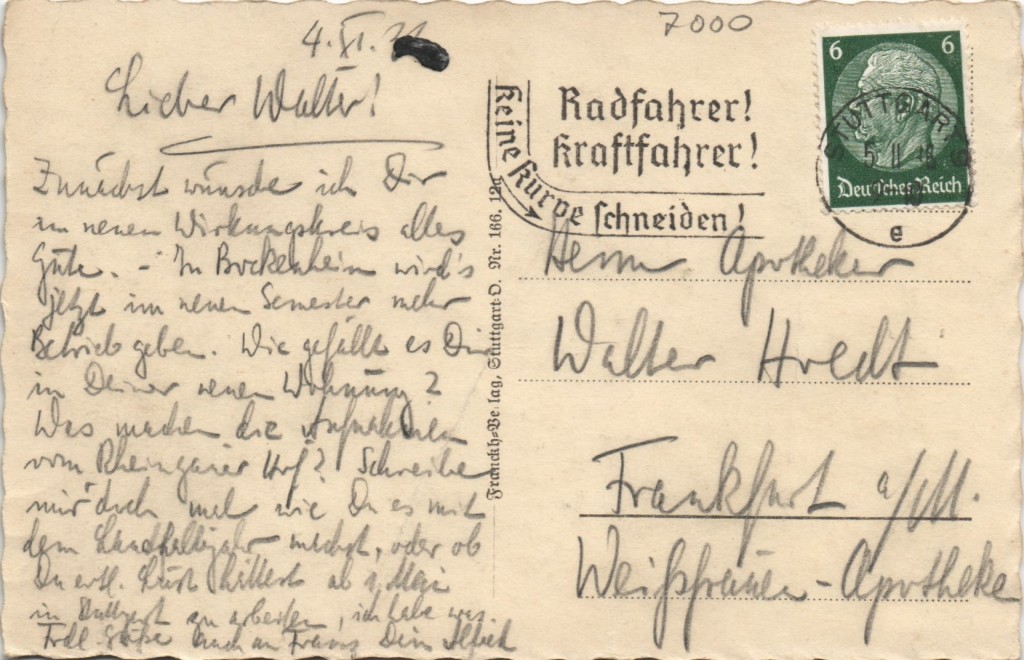 4. XI.
7000
Lieber Walter!
Zunächst wünsche ich Dir
im neuen Wirkungskreis alles
Gute. - In Bockenheim wird's
jetzt im neuen Semester mehr
Betrieb geben. Wie gefällt es Dir
in Deiner neuen Wohnung?
Was machen die
vom Rheingauer Hof? Schreibe
mir doch mal wie Du es mit
dem machst, oder ob
Du evtl. Lust hättest ab 1. Mai
in Stuttgart zu arbeiten, ich habe was
Frdl. Grüße auch an Franz Dein
Franckh-Verlag, Stuttgart-O. Nr. 166. 12a
Radfahrer!
Kraftfahrer!
Keine Kurve schneiden!
6 6
Deutsches Reich
STUTTGART 9
e
Herrn Apotheker
Walter
Frankfurt a/M.
Weißfrauen-Apotheke